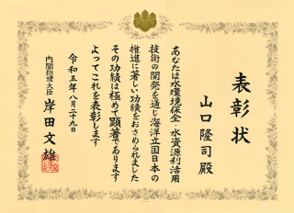 表彰状
山口隆司殿
あなたは水環境保全・水資源利活用
技術の開発を通じ海洋立国日本の
推進に著しい功績をおさめられました
その功績は極めて顕著であります
よってこれを表彰します
令和五年八月二十九日
内閣総理大臣 岸田文雄